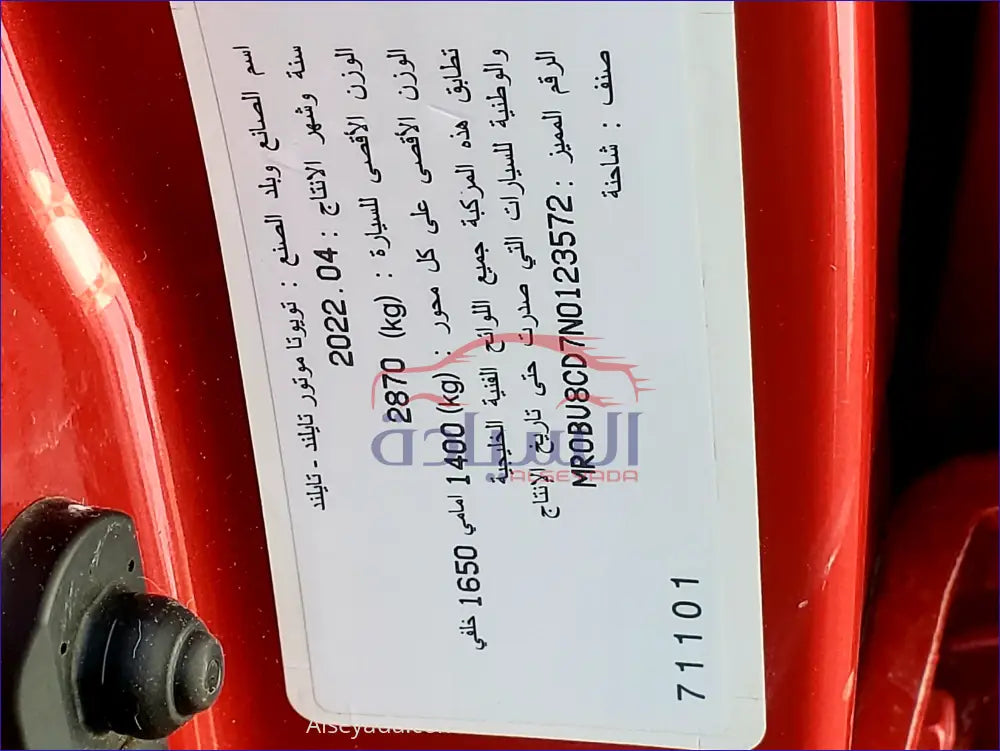 اسم الصانع وبلد الصنع : تويوتا موتور تايلند - تايلند
سنة وشهر الانتاج : 2022.04
الوزن الأقصى للسيارة : 2870 (kg)
الوزن الأقصى على كل محور : (kg) 1400 امامي 1650 خلفي
تطابق هذه المركبة جميع اللوائح الفنية الخليجية
والوطنية للسيارات التي صدرت حتى تاريخ الإنتاج
الرقم المميز : MR0BU8CD7N0123572
صنف : شاحنة
71101
السيادة
ALSEYADA